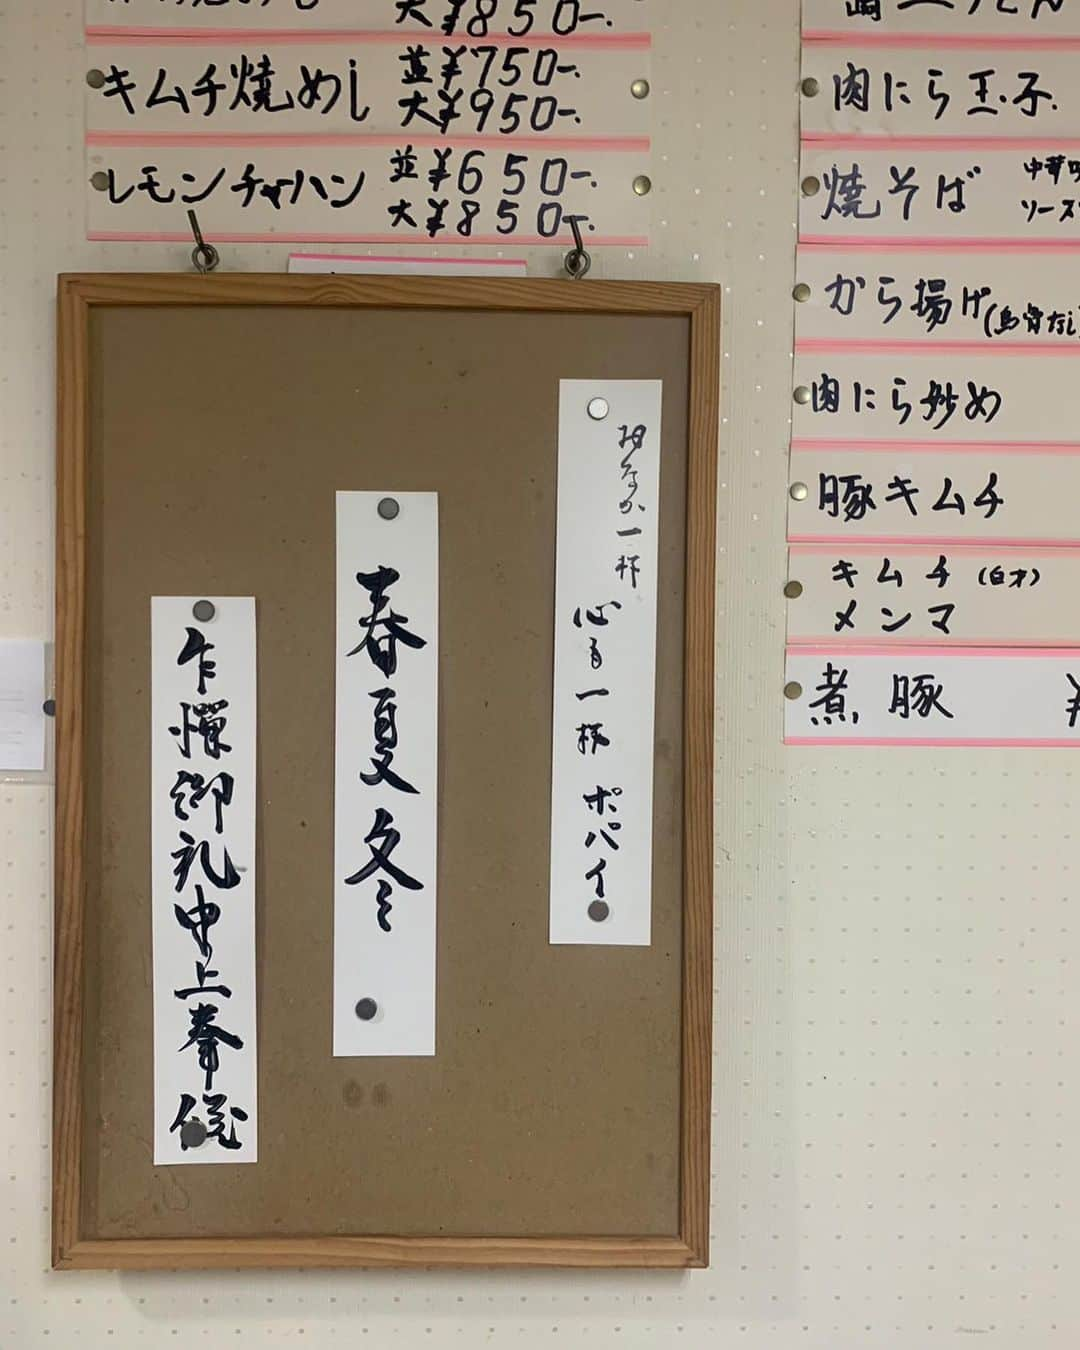 大¥850-.
キムチ焼めし 並¥750-.
大¥950-.
レモンチャーハン 並¥650-.
大¥850-.
肉にら玉子.
焼そば
中華
ソース
から揚げ
肉にら炒め
豚キムチ
キムチ(白才)
メンマ
煮豚 ¥
おなか一杯
心も一杯 ポパイ
春夏冬
乍憚御礼申上奉候